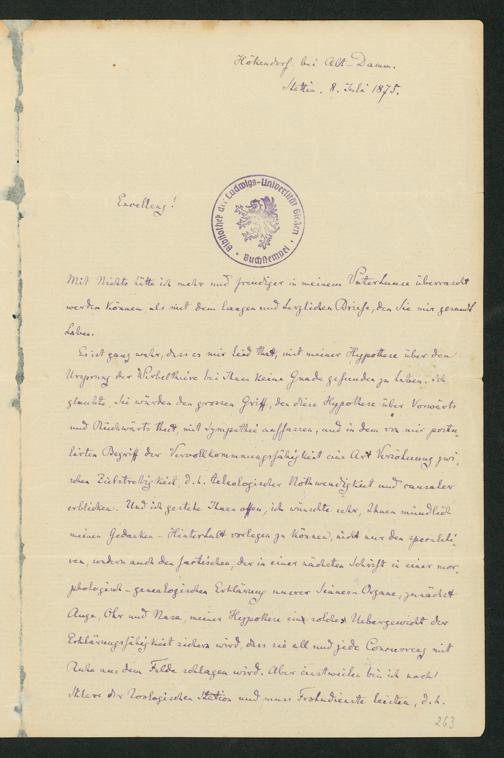 Hökendorf bei Alt-Damm.
Stettin. 8. Juli 1875.
Bibliothek der Ludwigs-Universität Gießen
Buchstempel
Excellenz!
Mit Nichts hätte ich mehr und freudiger in meinem Vaterhause überrascht
werden können als mit dem langen und herzlichen Briefe, den Sie mir gesandt
haben.
Es ist ganz wahr, dass es mir leid that, mit meiner Hypothese über den
Ursprung der Wirbelthiere bei Ihnen keine Gnade gefunden zu haben. Ich
glaubte, Sie würden den grossen Griff, den diese Hypothese über Vorwärts
und Rückwärts that, mit Sympathie auffassen, und in dem von mir postu-
lirten Begriff der Vervollkommnungsfähigkeit eine Art Versöhnung zwi-
schen Zielstrebigkeit, d. h. teleologischer Nothwendigkeit und causaler
erblicken. Und ich gestehe Ihnen offen, ich wünschte sehr, Ihnen mündlich
meinen Gedanken-Hinterhalt vorlegen zu können, nicht nur den speculati-
ven, sondern auch den factischen, der in einer nächsten Schrift in einer mor-
phologisch-genealogischen Erklärung unserer Sinnes-Organe, zunächst
Auge, Ohr und Nase, meiner Hypothese ein solches Uebergewicht der
Erklärungsfähigkeit sichern wird, dass sie all und jede Concurrenz mit
Ruhe aus dem Felde schlagen wird. Aber einstweilen bin ich noch
Sklave der Zoologischen Station und muss Frohndienste leisten, d. h.
263